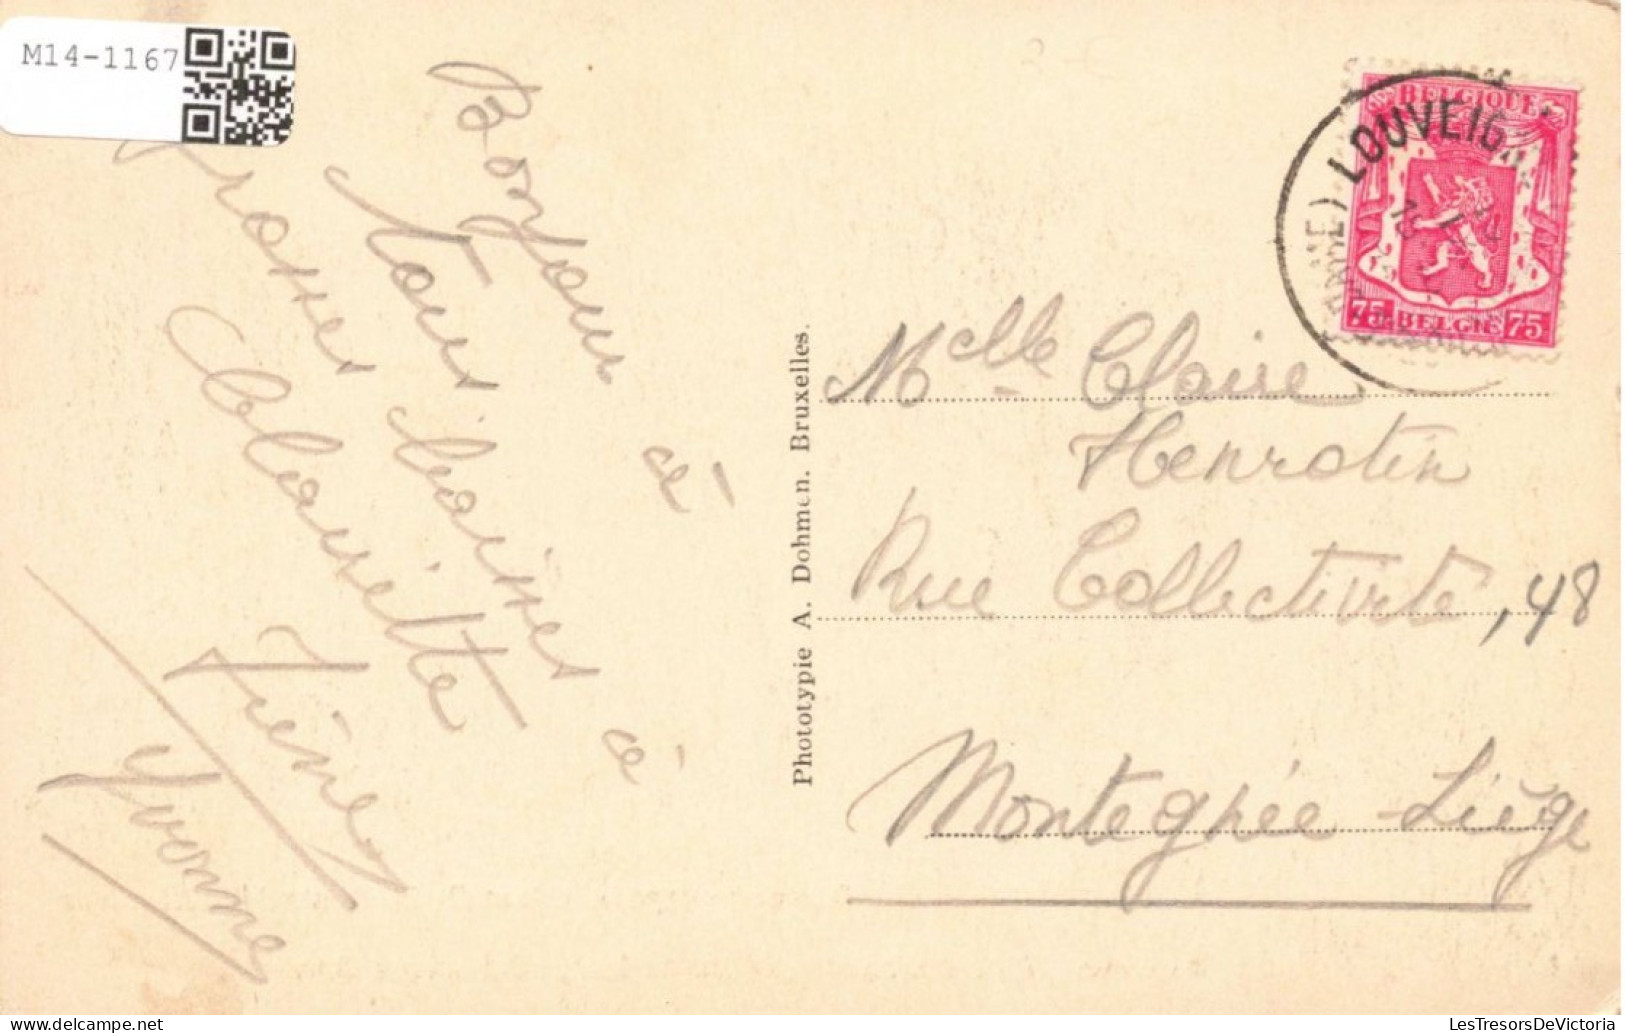 M14-1167
Bonjour à
tous baisers à
Grosses
Clairette
Yvonne
Phototypie A. Dohmen. Bruxelles.
BELGIQUE
75 BELGIE 75
LOUVEIG
Melle Claire
Henrotin
Rue Collectivité, 48
Montegnée-Liège
LesTresorsDeVictoria
www.delcampe.net